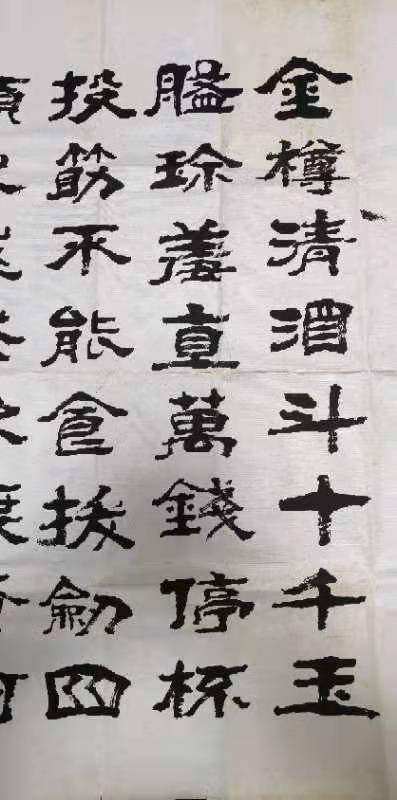 金樽清酒斗十千玉
盤珍羞直萬錢停杯
投筯不能食拔劍四